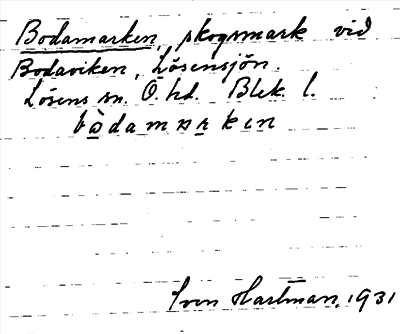 Bodamarken, skogsmark vid
Bodaviken, Lösensjön.
Lösens sn. Ö. hd. Blek. l.
bòdamarken
Sven Hartman, 1931